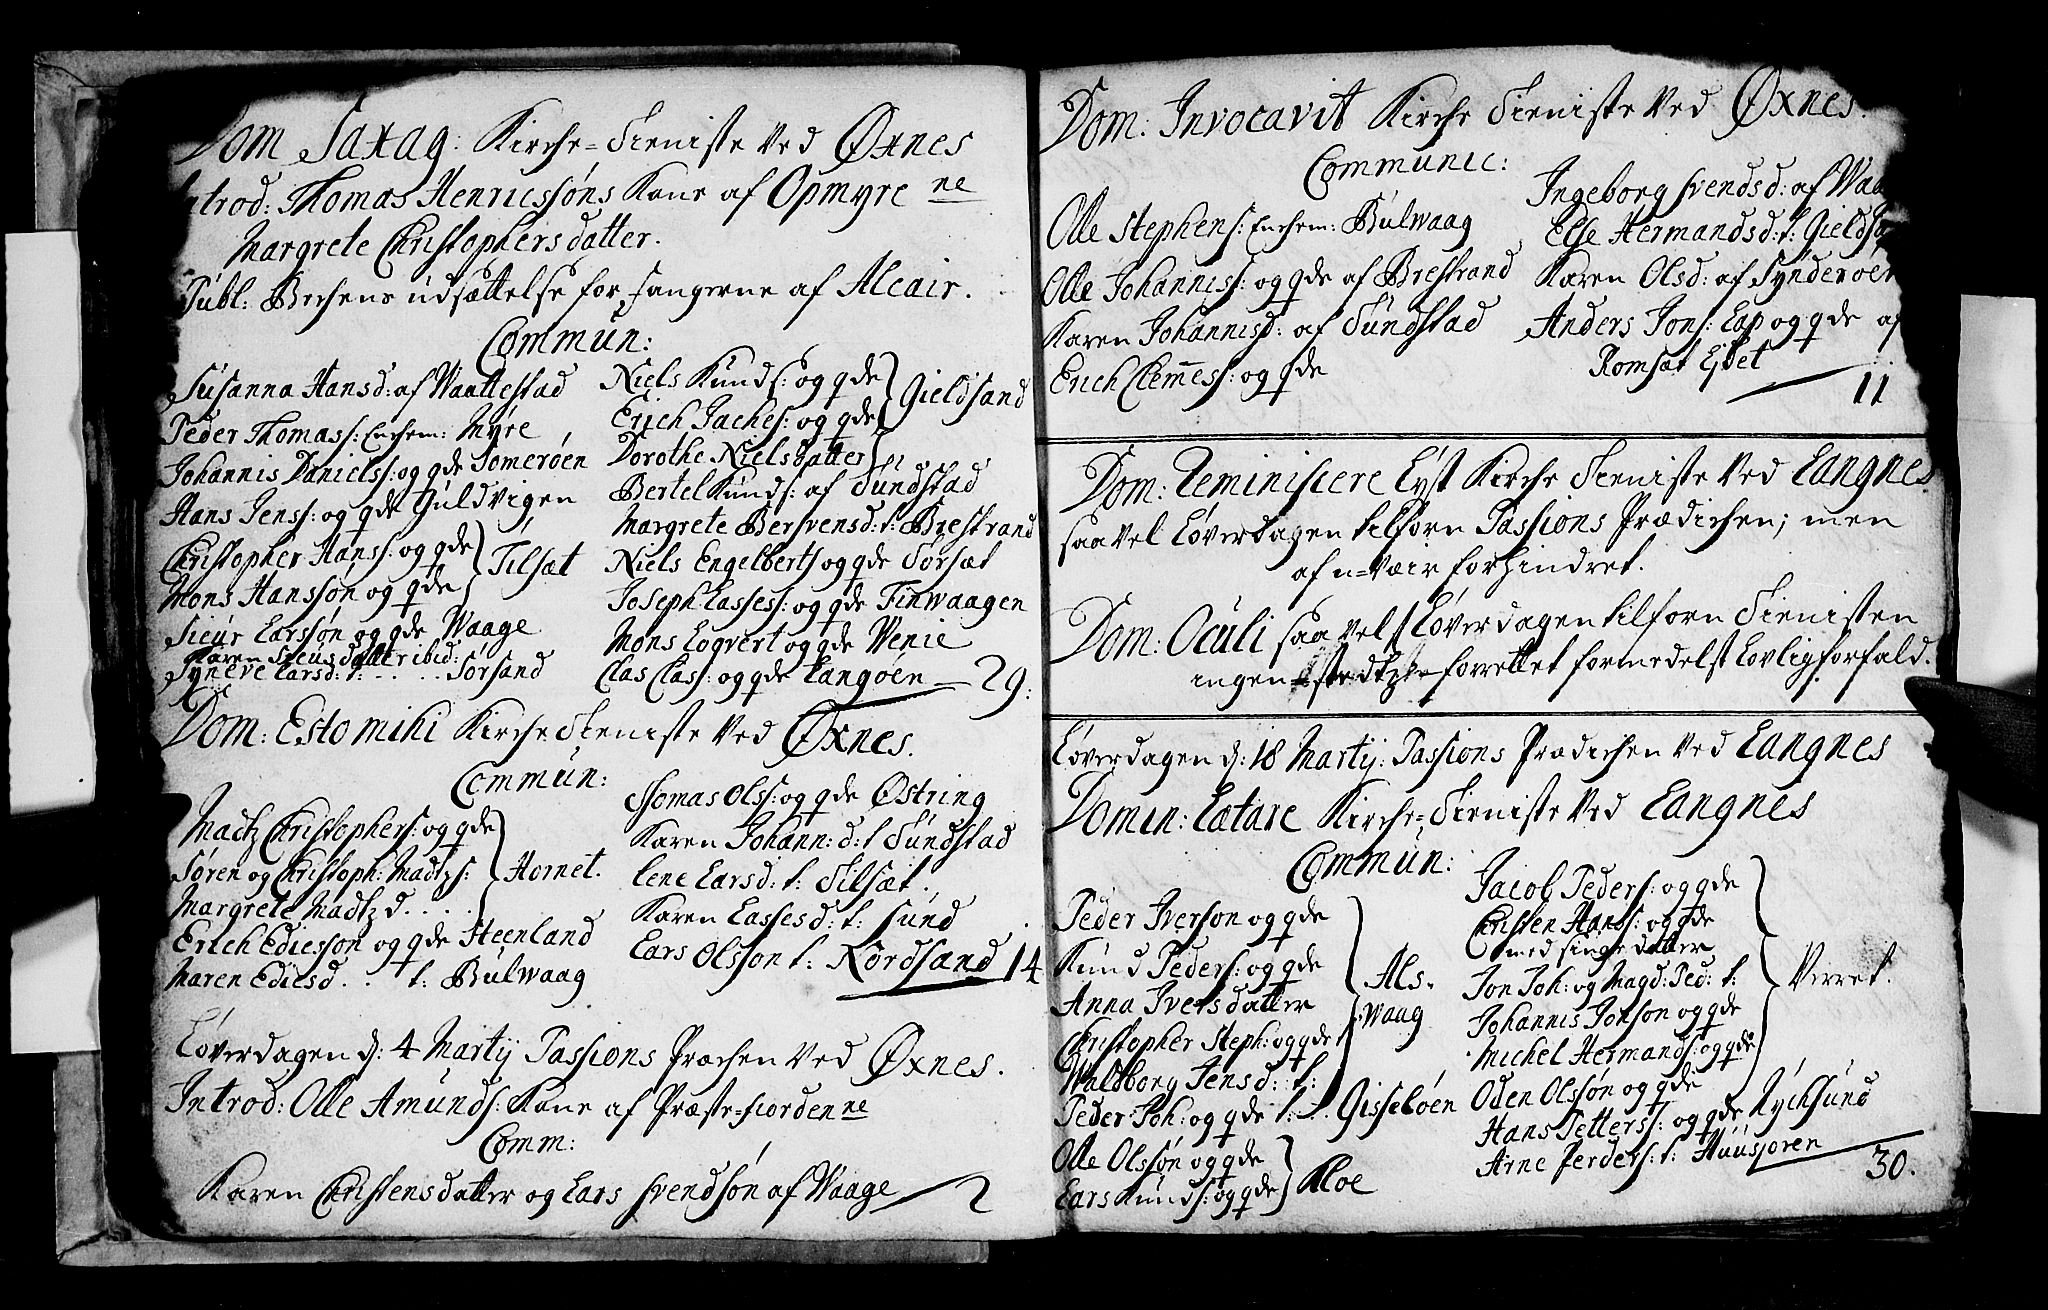 Dom Saxag: Kirche-Tieniste Ved Øxnes
Introd: Thomas Henricssøns Kone af Opmyrene
Margrete Christophersdatter.
Publ: Bechens udsættelse for fangerne af Alcair.
Commun:
Susanna Hansd: af Waattestad
Peder Thomass: Enchem: Myre
Johannis Danielss: og qde Somerøen
Hans Jenss: og qde Guldvigen
Christopher Hanss: og qde } Tilsæt
Mons Hanssøn og qde
Sieur Larssøn og qde Waage
Karen Sieursdatter ibid:
Syneve Larsd: t: - . . . Sørsand
Niels Knuds: og qde } Gieldsand
Erich Jaches: og qde
Dorothe Nielsdatter
Bertel Knuds: af Sundstad
Margrete Bersvensd: t: Brestrand
Niels Engelberts og qde Sørsæt
Joseph Lasses: og qde Finwaagen
Mons Logvert og qde Wenie
Clas Clas: og qde Langøen — 29:
Dom: Esto mihi Kirche Tieniste Ved Øxnes.
Commun:
Madtz Christophers: og qde
Søren og Christoph: Madtzs: } Hornet.
Margrete Madtzd . . . .
Erich Edissøn og qde Steenland
Maren Ediesd . . t: Bulwaag
Thomas Olss: og qde Østring
Karen Johann: d: t Sundstad
Lene Larsd: t: Tilsæt.
Karen Lassesd: t: Sund
Lars Olsson t: Nordsand 14
Løverdagen d: 4 Martij Passions Præchen Ved Øxnes.
Introd: Olle Amunds: Kone af Præste-fiordenne
Comm:
Karen Christensdatter og Lars Svendsøn af Waage — 2
Dom: Invocavit Kirche Tieniste Ved Øxnes.
Communic:
Olle Stephens: Enchem: Bulwaag
Olle Johanniss: og qde af Brestrand
Karen Johannisd: af Sundstad
Erich Clemmess: og qde
Ingeborg Svendsd: af
Else Hermandsd: t:
Karen Olsd: af Synderøen
Anders Jons: Lap og qde af
Romsæt Ejdet
11
Dom: Reminiscere Lyst Kirche Tieniste Ved Langnes
saavel Løverdagen tilforn Passions Prædichen; men
af u-væir forhindret.
Dom: Oculi saavel Løverdagen tilforn Tienisten
ingenstedtz forrettet formedelst Lovligforfald.
Løverdagen d: 18 Martij: Passions Prædichen Ved Langnes
Domin: Lætare Kirche-Tieniste Ved Langnes
Commun:
Peder Iverson og qde
Knud Peders: og qde
Anna Iversdatter } Als-
Christopher Steph: og qde waag
Waldborg Jensd: t:
Peder Joh: og qde t: . . Gisseløen
Olle Olssøn og qde } Kloe
Lars Knuds: og qde
Jacob Peders: og qde
Christen Hanss: og qde
med sine datter
Jon Joh: og Magd: Ped: t: } Verret.
Johannis Jonson og qde
Michel Hermands: og qde
Oden Olssøn og qde
Hans Petters: og qde Nychsund
Arne Peders: t: Huusjoren
30.